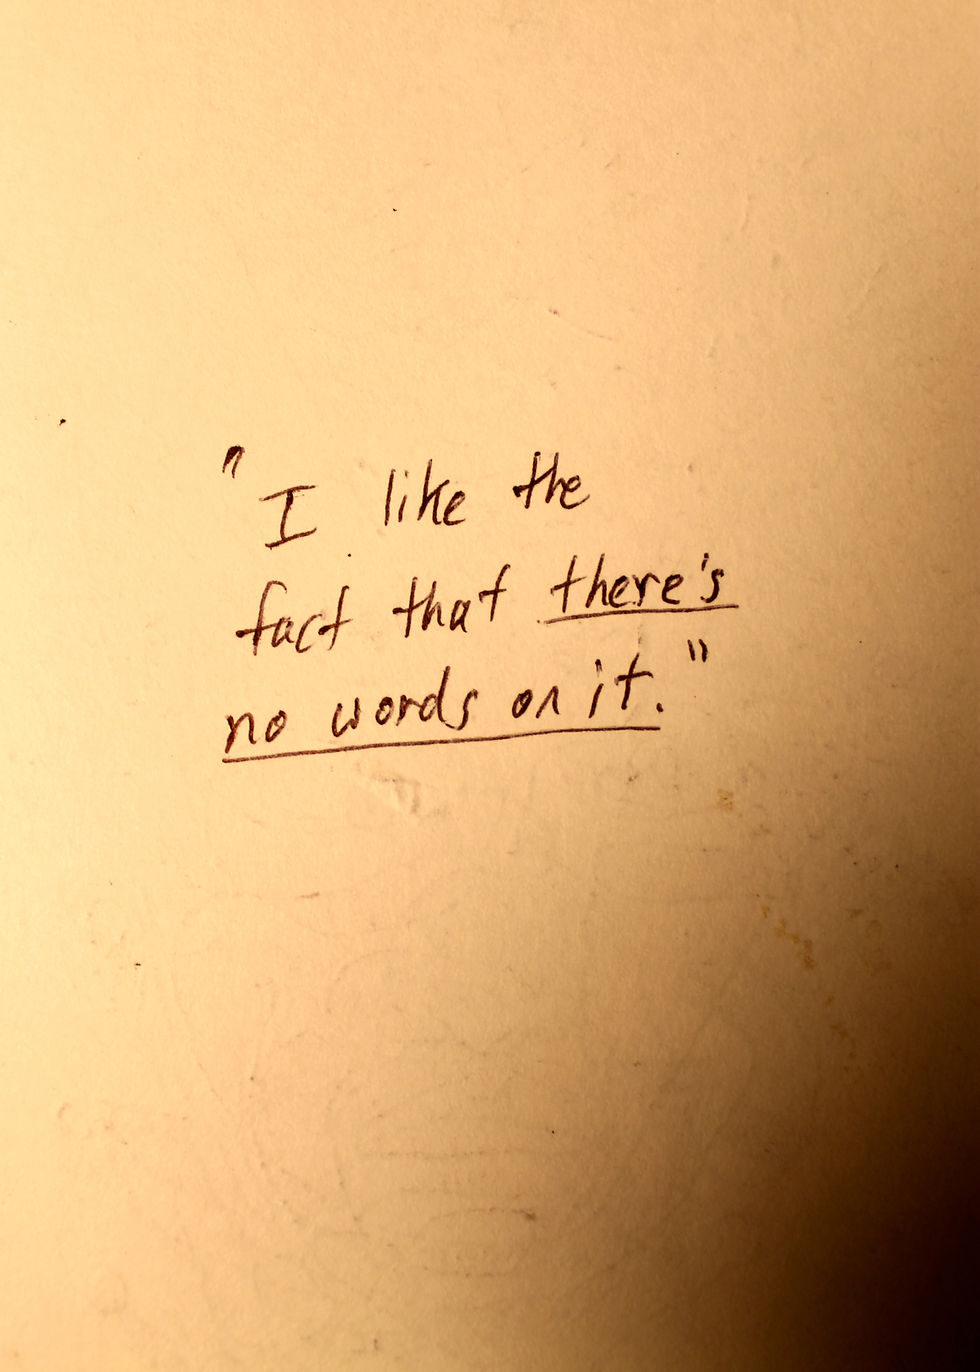 "I like the
fact that there's
no words on it."